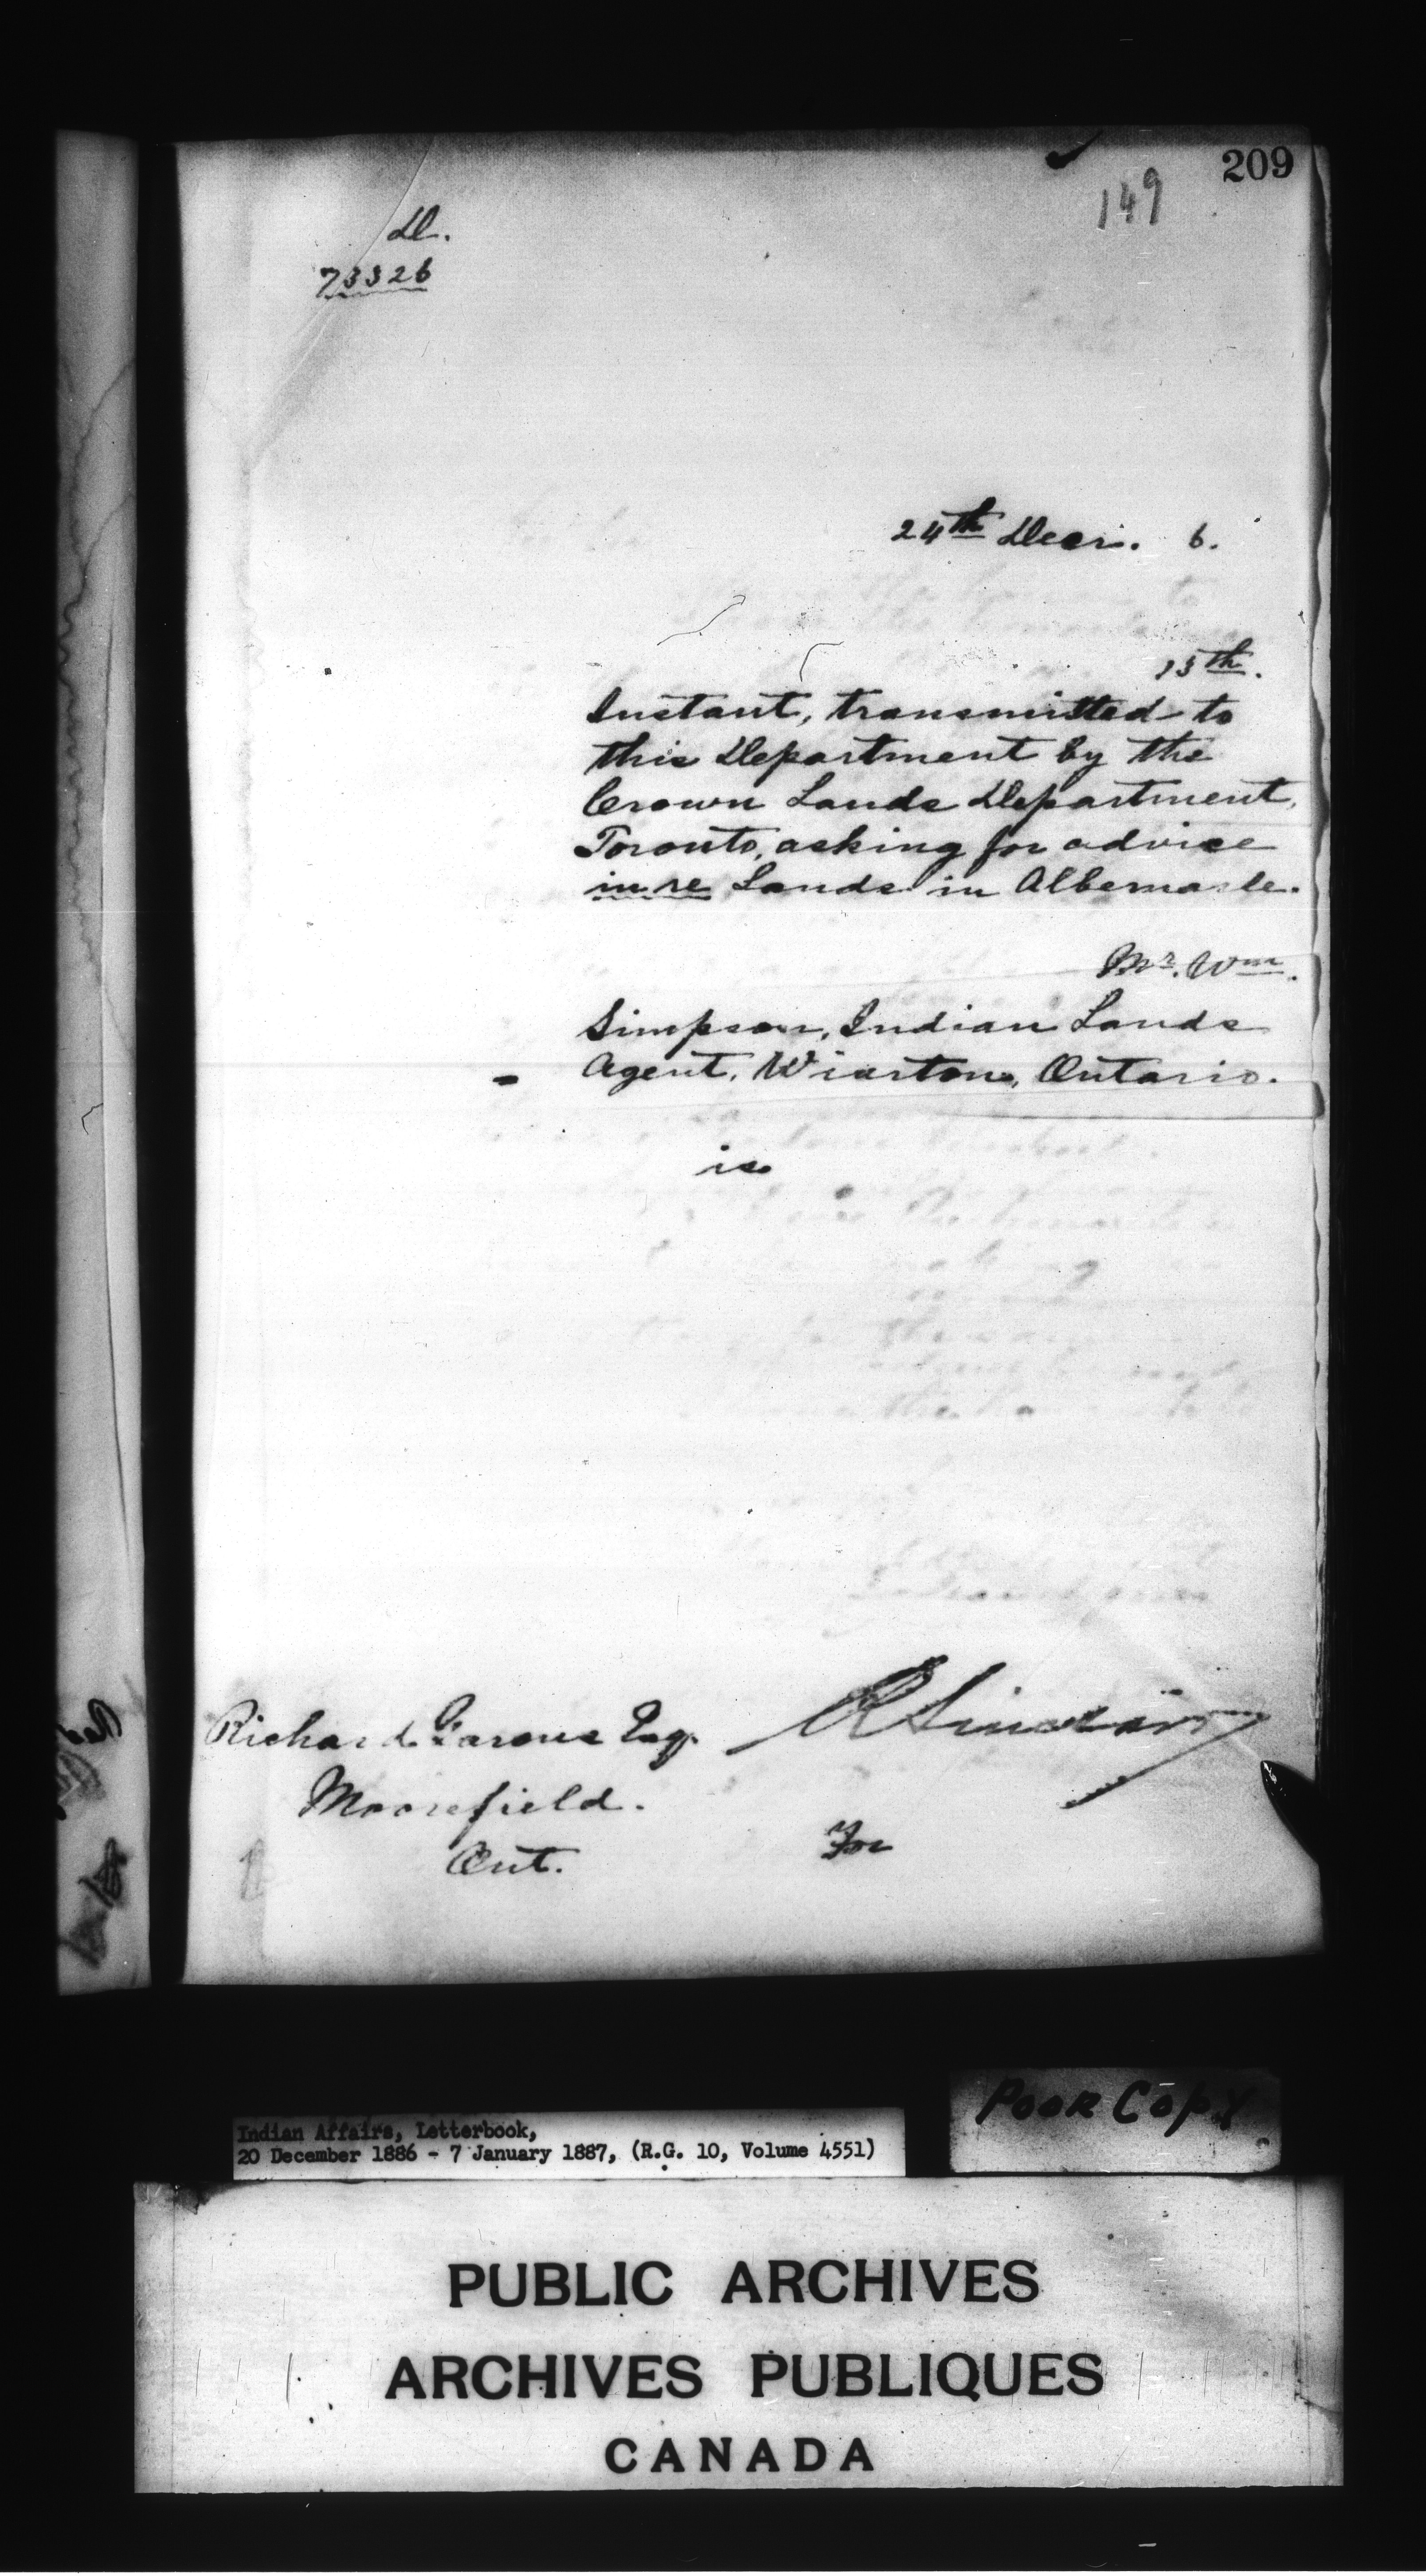 209
149
D.
73326
24th Decr. 6.
13th.
Instant, transmitted to
this Department by the
Crown Lands Department,
Toronto, asking for advice
in re Lands in Albemarle.
Mr. Wm.
Simpson, Indian Lands
Agent, Wiarton, Ontario.
is
Richard Esq.
R Sinclair
Moorefield.
Ont.
For
Poor Copy
Indian Affairs, Letterbook,
20 December 1886 - 7 January 1887, (R.G. 10, Volume 4551)
PUBLIC ARCHIVES
ARCHIVES PUBLIQUES
CANADA